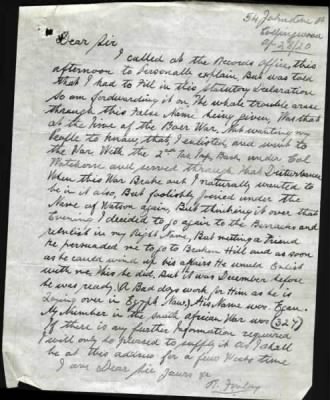 54 Johnston St
Collingwood
9/2/20
Dear Sir
I called at the Records Office, this
afternoon to Personally explain, But was told
that I had to Fill in this Statutory Declaration
so am forwarding it on, The whole trouble arose
through this False Name being given, Was that
at the Time of the Boer War, Not wanting my
People to know, that I enlisted, and went to
the War. With the 2nd Tas Imp Bush, under Col
Watchorn and served through that Disturbance
When this War Broke out I naturally wanted to
be in it also, But foolishly Joined under the
Name of Watson again, But thinking it over that
Evening I decided to, go again to the Barracks and
reenlist in my Right Name, But meeting a Friend
He persuaded me to go to Broken Hill and as soon
as he could wind up his affairs He would Enlist
with me, this he did, But it was December before
he was ready, A Bad days work for Him as he is
Laying over in Egypt Now, His Name was Egan.
My Number in the South African War was (327)
If there is any further Information required
I will only be pleased to supply it as I shall
be at this address for a few Weeks time
I am Dear Sir Yours re
R. Finlay